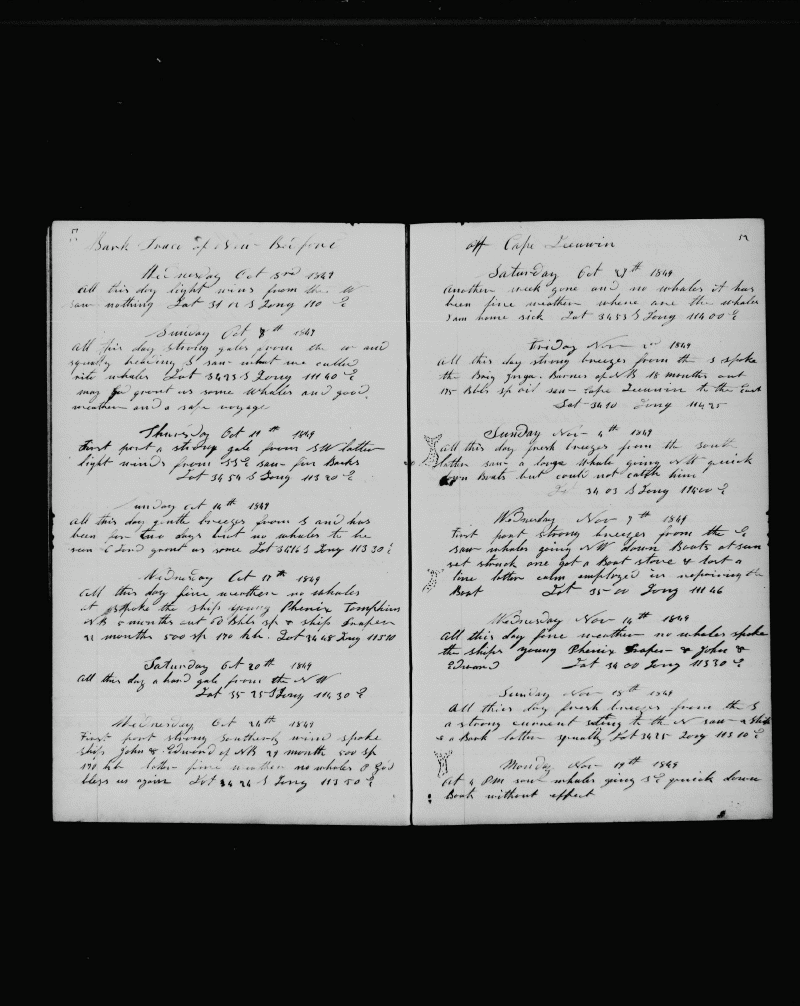 Bark Draco of New Bedford
Wednesday Oct 3rd 1849
All this day light wins from the W
saw nothing Lat 34 12 S Long 110 E
Sunday Oct 8th 1849
All this day strong gales from the W and
squally heading S saw what we culled
rite whales Lat 34 23 S Long 111 40 E
may God grant us some Whales and good
weather and a safe voyage
Thursday Oct 11th 1849
First part a strong gale from SW latter
light winds from SSE saw fin Backs
Lat 34 54 S Long 113 20 E
Sunday Oct 14th 1849
All this day gentle breezes from S and has
been for two days but no whales to be
seen O Lord grant us some Lat 34 16 S Long 113 30 E
Wednesday Oct 17th 1849
All this day fine weather no whales
at spoke the ship young Phenix Tompkins
NB 5 months out 60 Bbls sp & ship Draper
21 months 500 sp 170 kk. Lat 34 48 Long 115 10
Saturday Oct 20th 1849
All this day a hard gale from the NW
Lat 35 25 S Long 114 30 E
Wednesday Oct 24th 1849
First part strong Southerly wind spoke
ship John & Edward of NB 29 month 500 sp
170 kk latter fine weather no whales O God
bless us again Lat 34 24 S Long 113 50 E
off Cape Leeuwin
52
Saturday Oct 27th 1849
Another week gone and no whales it has
been fine weather where are the whales
I am home sick Lat 34 53 S Long 114 00 E
Friday Nov 2nd 1849
All this day strong breezes from the S spoke
the Brig Barnes of NB 18 months out
175 Bbls sp oil saw Cape Leeuwin to the East
Lat 34 10 Long 114 25
Sunday Nov 4th 1849
All this day fresh breezes from the South
latter saw a large Whale going NW quick
down Boats but could not catch him
Lat 34 03 S Long 114 00 E
Wednesday Nov 7th 1849
First part strong breezes from the E
saw whales going NW down Boats at sun
set struck one got a Boat stove & lost a
line latter calm employed in repairing the
Boat Lat 35 00 Long 111 46
Wednesday Nov 14th 1849
All this day fine weather no whales spoke
the ships young Phenix Draper & John &
Edward Lat 34 00 Long 113 30 E
Sunday Nov 18th 1849
All this day fresh breezes from the S
a strong current setting to the N saw a Ship
& a Bark latter squally Lat 34 25 Long 113 10 E
Monday Nov 19th 1849
At 4 PM saw whales going SE quick down
Boats without effect